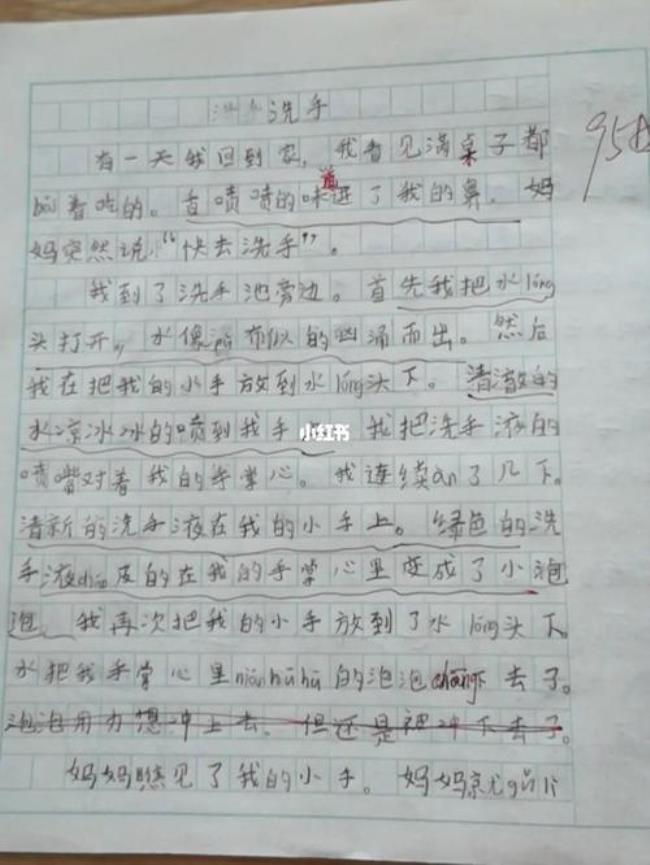 洗手
有一天我回到家，我看见满桌子都
bǎi着吃的。香喷喷的味道进了我的鼻，妈
妈突然说，“快去洗手”。
我到了洗手池旁边。首先我把水lóng
头打开，水像瀑布似的凶涌而出。然后
我在把我的小手放到水lóng头下。清澈的
水凉冰冰的喷到我手 我把洗手液的
喷嘴对着我的手掌心。我连续àn了几下。
清新的洗手液在我的小手上。绿色的洗
手液 皮的在我的手掌心里变成了小泡
泡、我再次把我的小手放到了水lóng头下。
水把我手掌心里niánhūhū的泡泡chōng下去了。
泡泡用力想冲上去，但还是被冲下去了。
妈妈瞧见了我的小手。妈妈
95
小红书